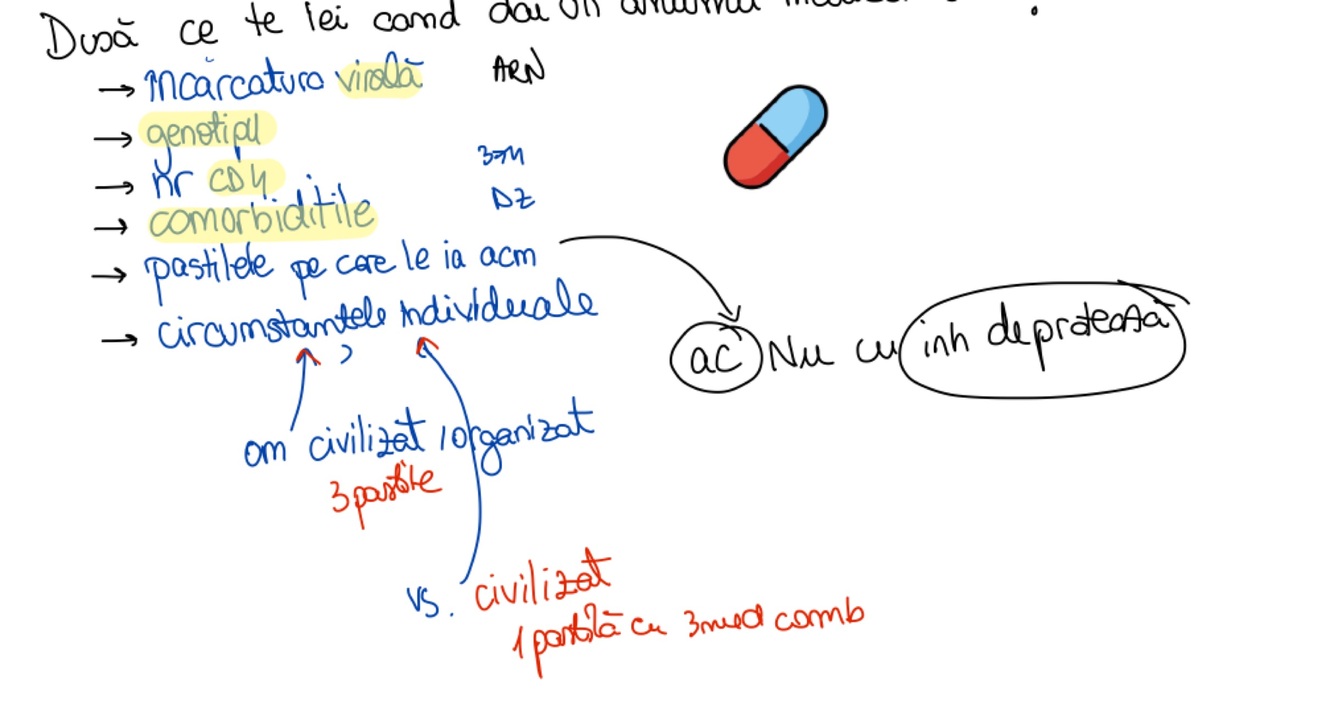 După ce te iei cand dai un anumit
→ încărcatura virală ARN
→ genotipul
→ nr CD4
→ comorbiditile DZ
→ pastilele pe care le ia acm
→ circumstanțele individuale
ac Nu cu inh de protează
om civilizat / organizat
3 pastile
vs. civilizat
1 pastilă cu 3 med comb